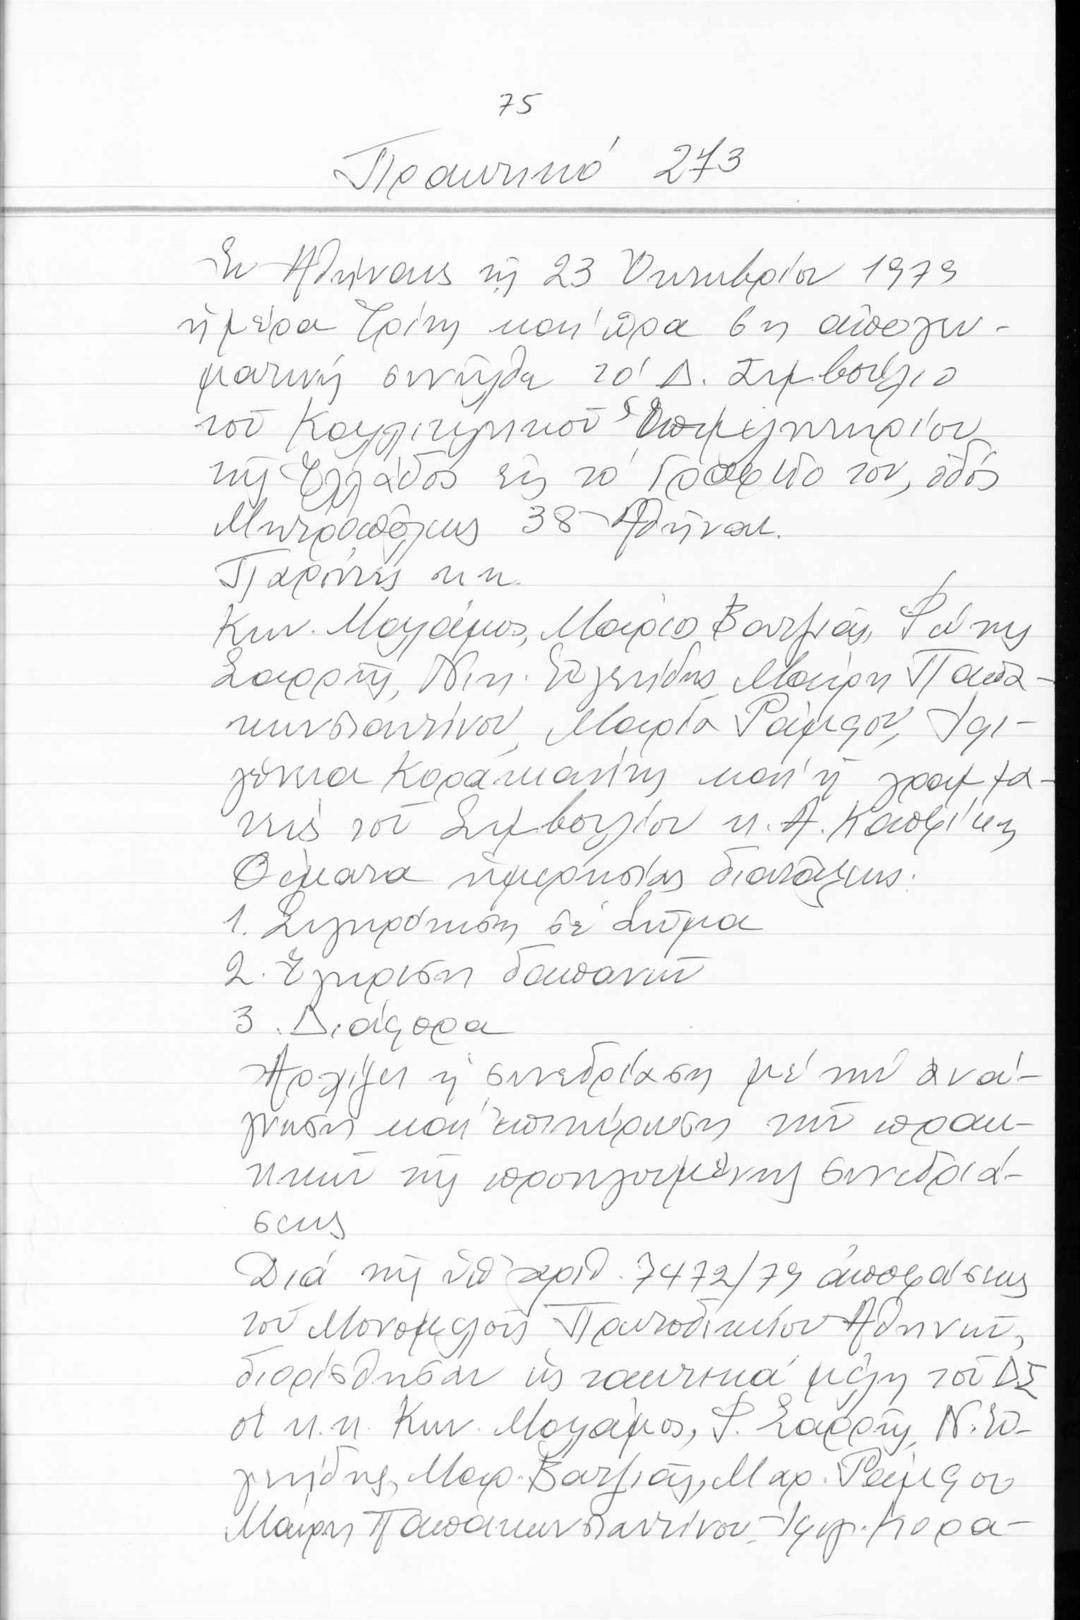 75
Πρακτικό 273
Ἐν Ἀθήναις τῇ 23 Ὀκτωβρίου 1979
ἡμέρα Τρίτη καί ὥρα 6η ἀπογευ-
ματινή συνῆλθε τό Δ. Συμβούλιο
τοῦ Καλλιτεχνικοῦ Ἐπιμελητηρίου
τῆς Ἑλλάδος εἰς τό Γραφεῖο του, ὁδός
Μητροπόλεως 38 Ἀθῆναι.
Παρόντες κ.κ.
Κων. Μαλάμος, Μάριος Βατζιᾶς, Φώτης
Σαρρῆς, Νικ. Εὐγενίδης, Μαίρη Παπα-
κωνσταντίνου, Μαρία Ράμφου, Ἰφι-
γένεια Καρακατσάνη καί ἡ γραμμα-
τεύς τοῦ Συμβουλίου κ. Α.
Θέματα ἡμερησίας διατάξεως:
1. Συγκρότηση σέ Σῶμα
2. Ἔγκριση δαπανῶν
3. Διάφορα
Ἀρχίζει ἡ συνεδρίαση μέ τήν ἀνά-
γνωση καί ἐπικύρωση τῶν πρακ-
τικῶν τῆς προηγουμένης συνεδριά-
σεως
Διά τῆς ὑπ' ἀριθ. 7472/79 ἀποφάσεως
τοῦ Μονομελοῦς Πρωτοδικείου Ἀθηνῶν,
διορίσθησαν ὡς τακτικά μέλη τοῦ ΔΣ
οἱ κ.κ. Κων. Μαλάμος, Φ. Σαρρῆς, Ν. Εὐ-
γενίδης, Μαρ. Βατζιᾶς, Μαρ. Ράμφου
Μαίρη Παπακωνσταντίνου, Ἰφιγ. Καρα-